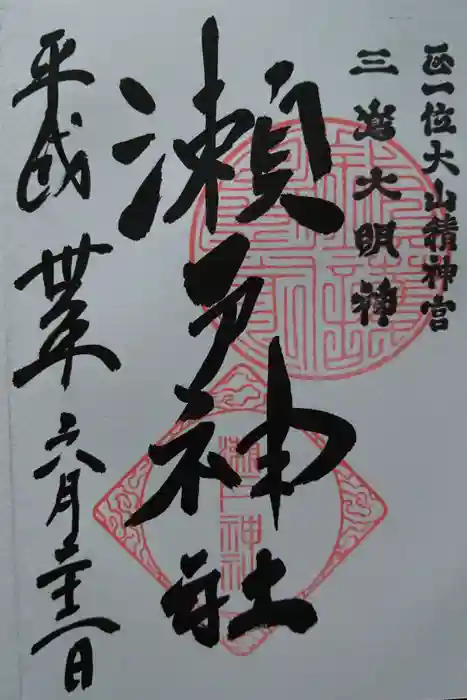 正一位大山積神宮
三嶌大明神
瀬戸神社
平成丗年六月二十一日
瀬戸神社